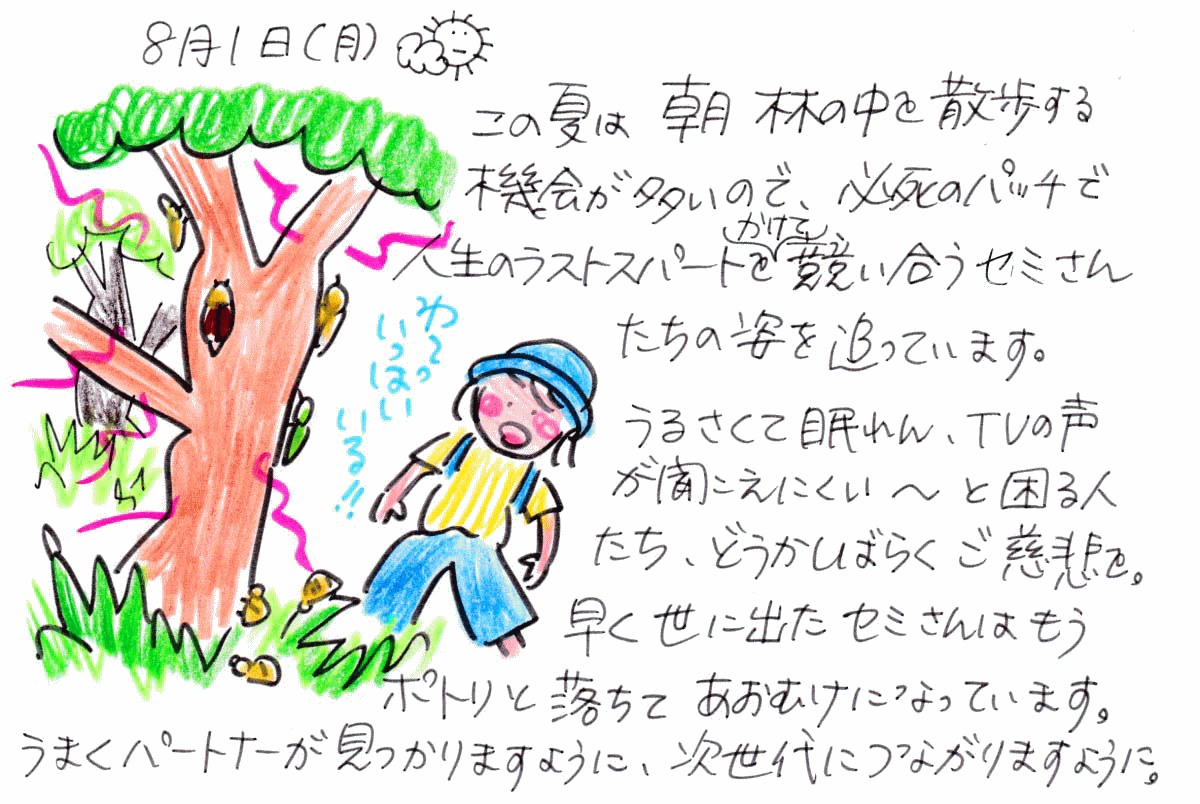 8月1日(月)
この夏は 朝 林の中を散歩する
機会が多いので、必死のパッチで
人生のラストスパートをかけて競い合うセミさん
たちの姿を追っています。
わ〜っ
いっぱい
いる!!
うるさくて眠れん、TVの声
が聞こえにくい〜と困る人
たち、どうかしばらくご慈悲を。
早く世に出たセミさんはもう
ポトリと落ちてあおむけになっています。
うまくパートナーが見つかりますように、次世代につながりますように。